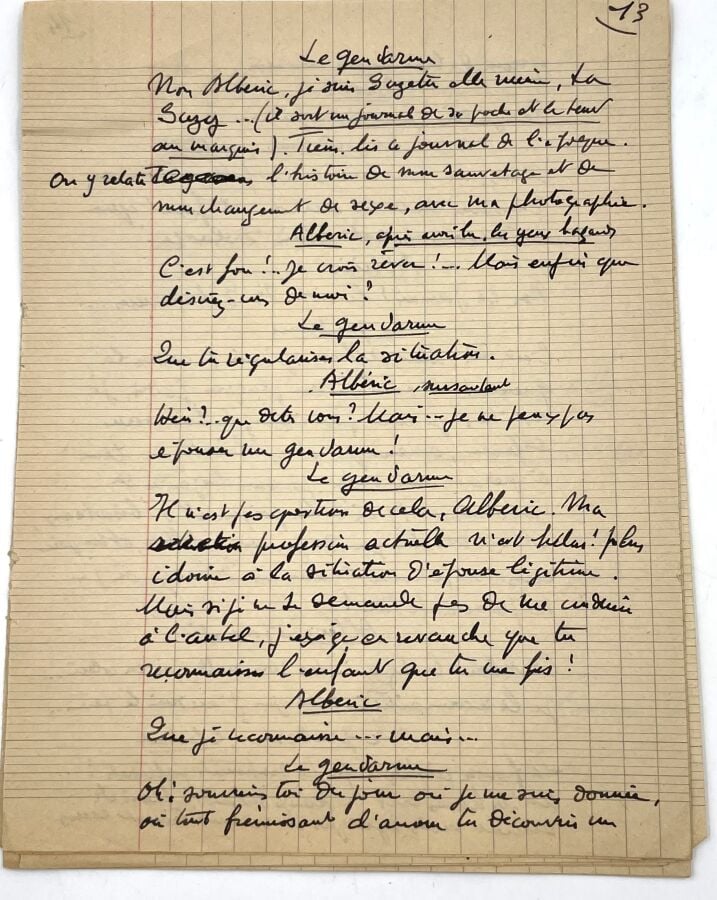 13
Le gendarme
Non Albéric, je suis Suzette elle même, La
Suzy ... (il sort un journal de sa poche et le tend
au marquis). Tiens. lis ce journal de l'époque.
On y relate l'histoire de mon sauvetage et de
mon changement de sexe, avec ma photographie.
Albéric, après avoir lu, les yeux hagards
C'est fou!.. Je crois rêver!... Mais enfin que
désirez-vous de moi?
Le gendarme
Que tu régularises la situation.
Albéric, sursautant
Hein?.. que dites vous? Mais... je ne peux pas
épouser un gendarme!
Le gendarme
Il n'est pas question de cela, Albéric. Ma
profession actuelle n'est hélas! plus
idoine à la situation d'épouse légitime.
Mais si je ne te demande pas de me conduire
à l'autel, j'exige en revanche que tu
reconnaisses l'enfant que tu me fis!
Albéric
Que je reconnaisse ... mais...
Le gendarme
Oh! souviens toi du jour où je me suis donnée,
où tout frémissant d'amour tu découvris un